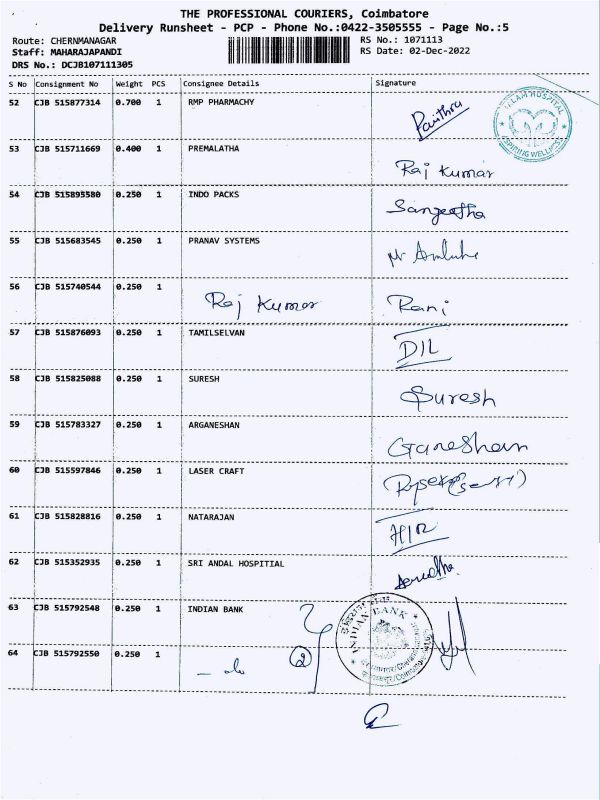 THE PROFESSIONAL COURIERS, Coimbatore
Delivery Runsheet - PCP - Phone No.:0422-3505555 - Page No.:5
Route: CHERNMANAGAR RS No.: 1071113
Staff: MAHARAJAPANDI RS Date: 02-Dec-2022
DRS No.: DCJB107111305
S No Consignment No Weight PCS Consignee Details Signature
52 CJB 515877314 0.700 1 RMP PHARMACHY Pavithra
53 CJB 515711669 0.400 1 PREMALATHA Raj Kumar
54 CJB 515895580 0.250 1 INDO PACKS Sangeetha
55 CJB 515683545 0.250 1 PRANAV SYSTEMS
56 CJB 515740544 0.250 1 Raj Kumar Rani
57 CJB 515876093 0.250 1 TAMILSELVAN DIL
58 CJB 515825088 0.250 1 SURESH Suresh
59 CJB 515783327 0.250 1 ARGANESHAN Ganeshan
60 CJB 515597846 0.250 1 LASER CRAFT
61 CJB 515828816 0.250 1 NATARAJAN
62 CJB 515352935 0.250 1 SRI ANDAL HOSPITIAL
63 CJB 515792548 0.250 1 INDIAN BANK
INDIAN BANK
64 CJB 515792550 0.250 1 - do 2